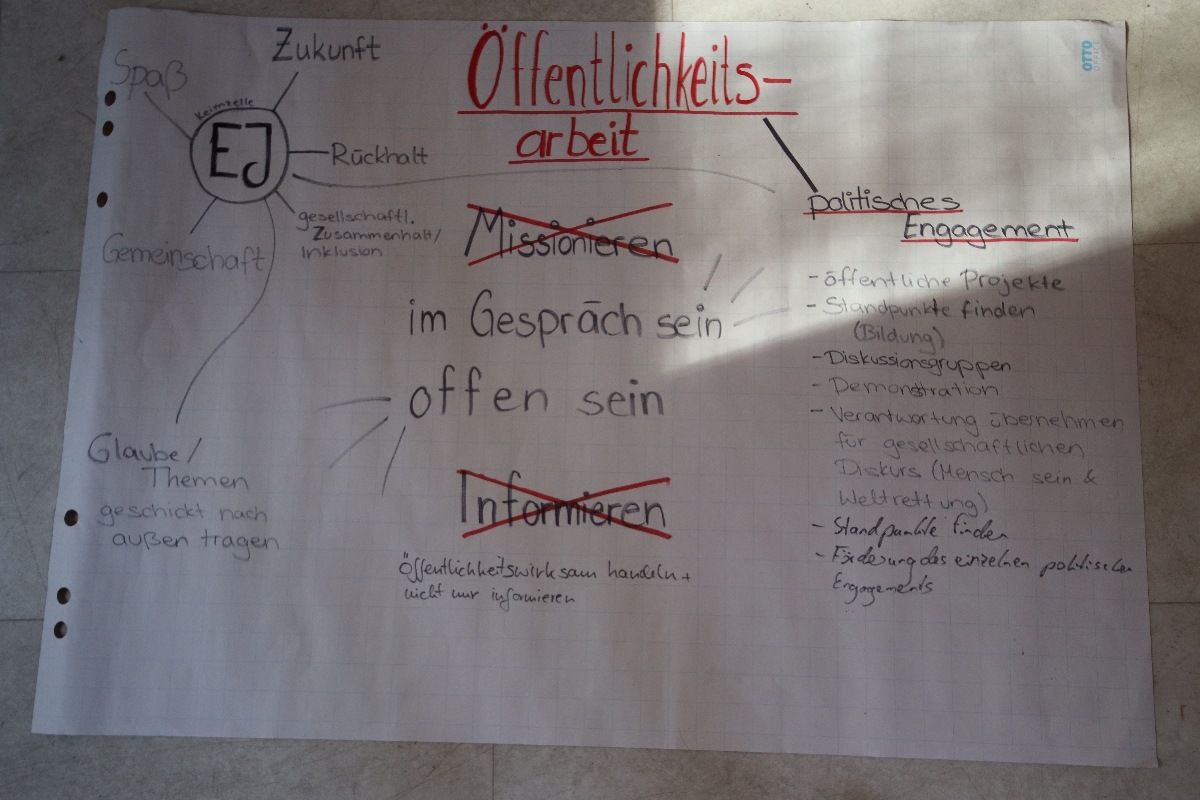 Öffentlichkeits-
arbeit
OTTO
OFFICE
Zukunft
Spaß
Keimzelle
EJ
Rückhalt
gesellschaftl.
Zusammenhalt/
Inklusion
Gemeinschaft
Glaube/
Themen
geschickt nach
außen tragen
Missionieren
im Gespräch sein
offen sein
Informieren
Öffentlichkeitswirksam handeln +
nicht nur informieren
politisches
Engagement
- öffentliche Projekte
- Standpunkte finden
(Bildung)
- Diskussionsgruppen
- Demonstration
- Verantwortung übernehmen
für gesellschaftlichen
Diskurs (Mensch sein &
Weltrettung)
- Standpunkte finden
- Förderung des einzelnen politischen
Engagements